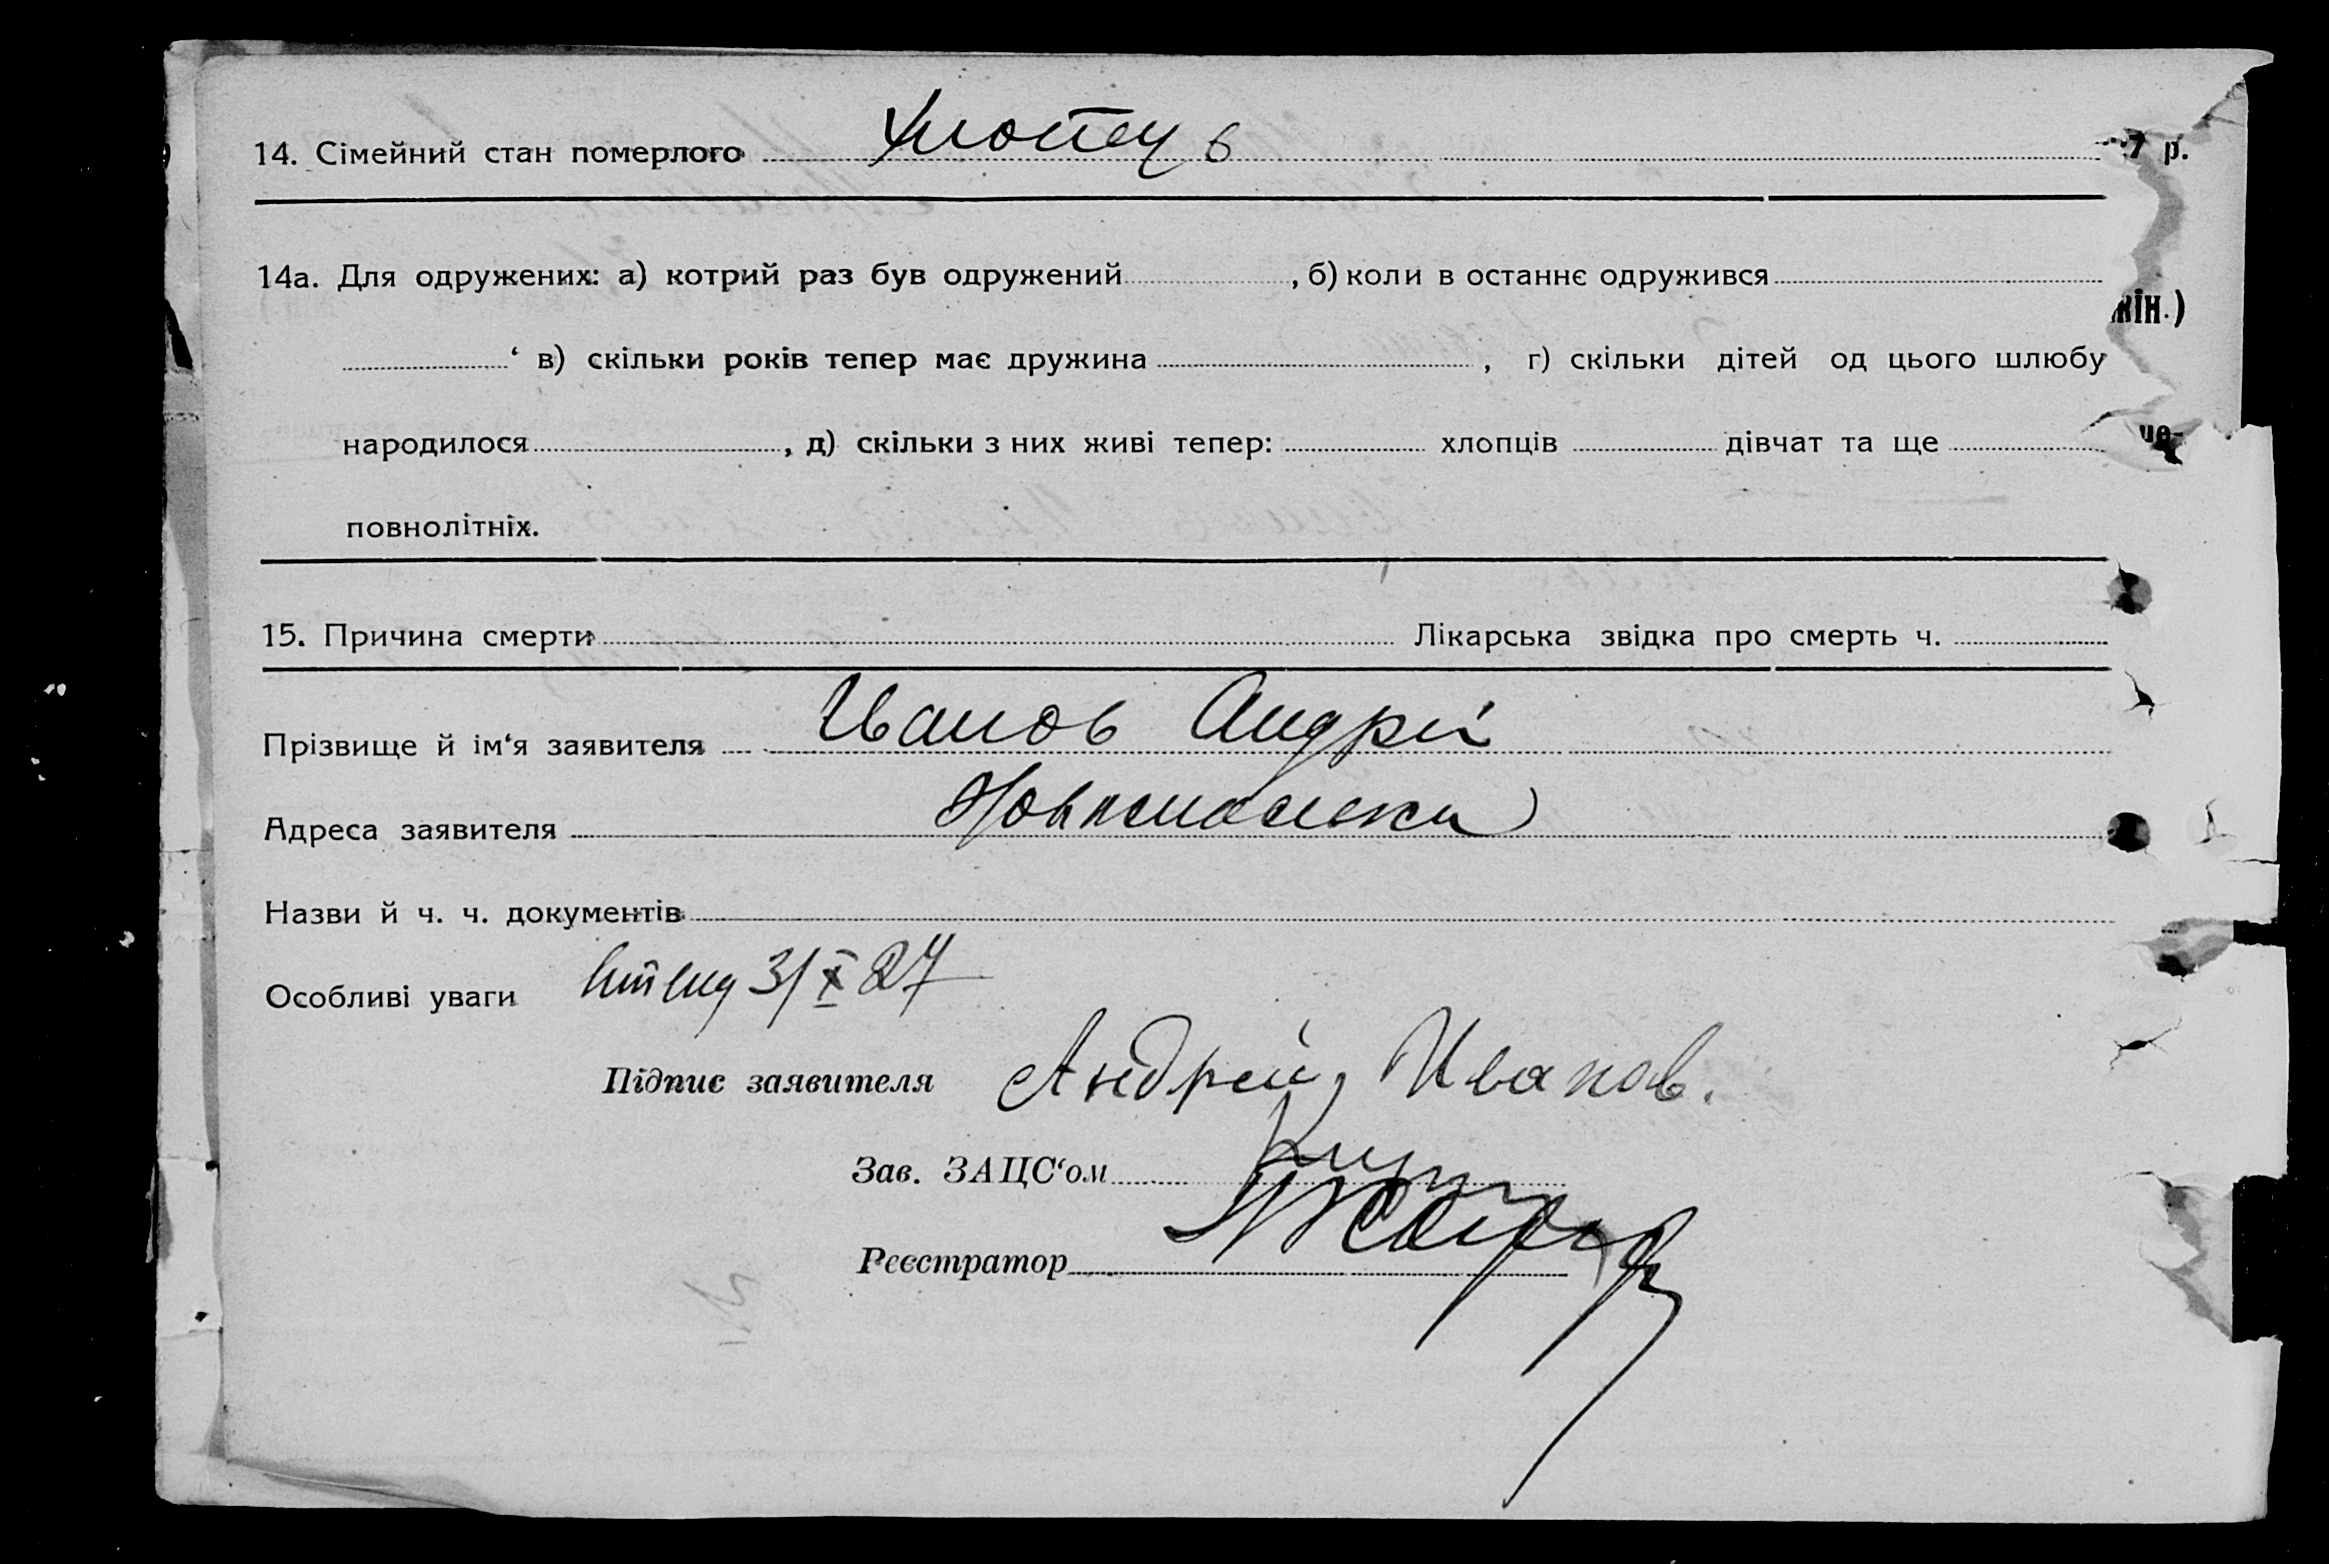 14. Сімейний стан померлого Хлопець 7 р.
14а. Для одружених: а) котрий раз був одружений , б) коли в останнє одружився
жін.)
‘ в) скільки років тепер має дружина , г) скільки дітей од цього шлюбу
народилося , д) скільки з них живі тепер: хлопців дівчат та ще
повнолітніх.
15. Причина смерти Лікарська звідка про смерть ч.
Прізвище й ім‘я заявителя Иванов Андрій
Адреса заявителя
Назви й ч. ч. документів
Особливі уваги 3/X 27
Підпис заявителя Андрей Иванов.
Зав. ЗАЦС‘ом
Реєстратор